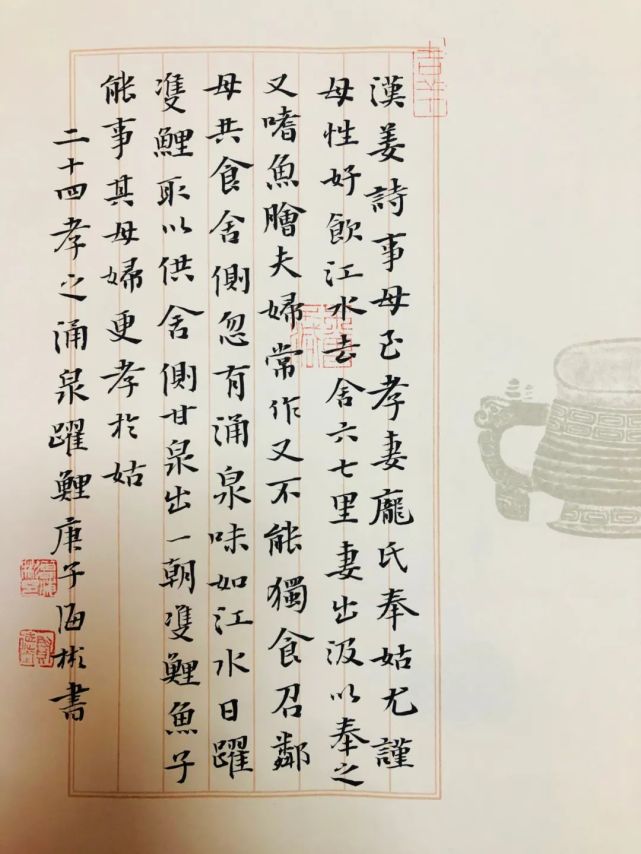 漢姜詩事母至孝妻龐氏奉姑尤謹
母性好飲江水去舍六七里妻出汲以奉之
又嗜魚膾夫婦常作又不能獨食召鄰
母共食舍側忽有涌泉味如江水日躍
雙鯉取以供舍側甘泉出一朝雙鯉魚子
能事其母婦更孝於姑
二十四孝之涌泉躍鯉庚子海彬書